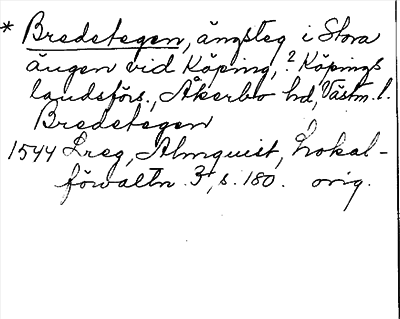 * Bredetegen, ängsteg i Stora
ängen vid Köping, ? Köpings
landsförs., Åkerbo hd, Västm. l.
Bredetegen
1544 Lreg, Almquist, Lokal-
förvaltn. 3, s. 180. orig.